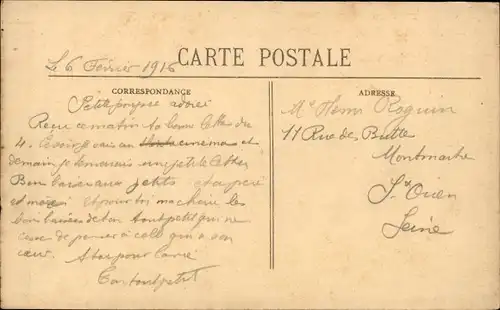 Le 6 Février 1916
CARTE POSTALE
CORRESPONDANCE
Petite poupée adorée
Reçu ce matin ta bonne lettre du
4. Ce soir je vais au cinema et
demain je t'enverrais une petite lettre
Bon baisers aux petits et a père
et mère et pour toi ma cherie les
bons baisers de ton tout petit qui ne
cesse de penser à celle qui a son
cœur. A toi pour la vie
Ton tout petit
ADRESSE
Me Henri Roguin
11 Rue des Buttes
Montmartre
St Ouen
Seine